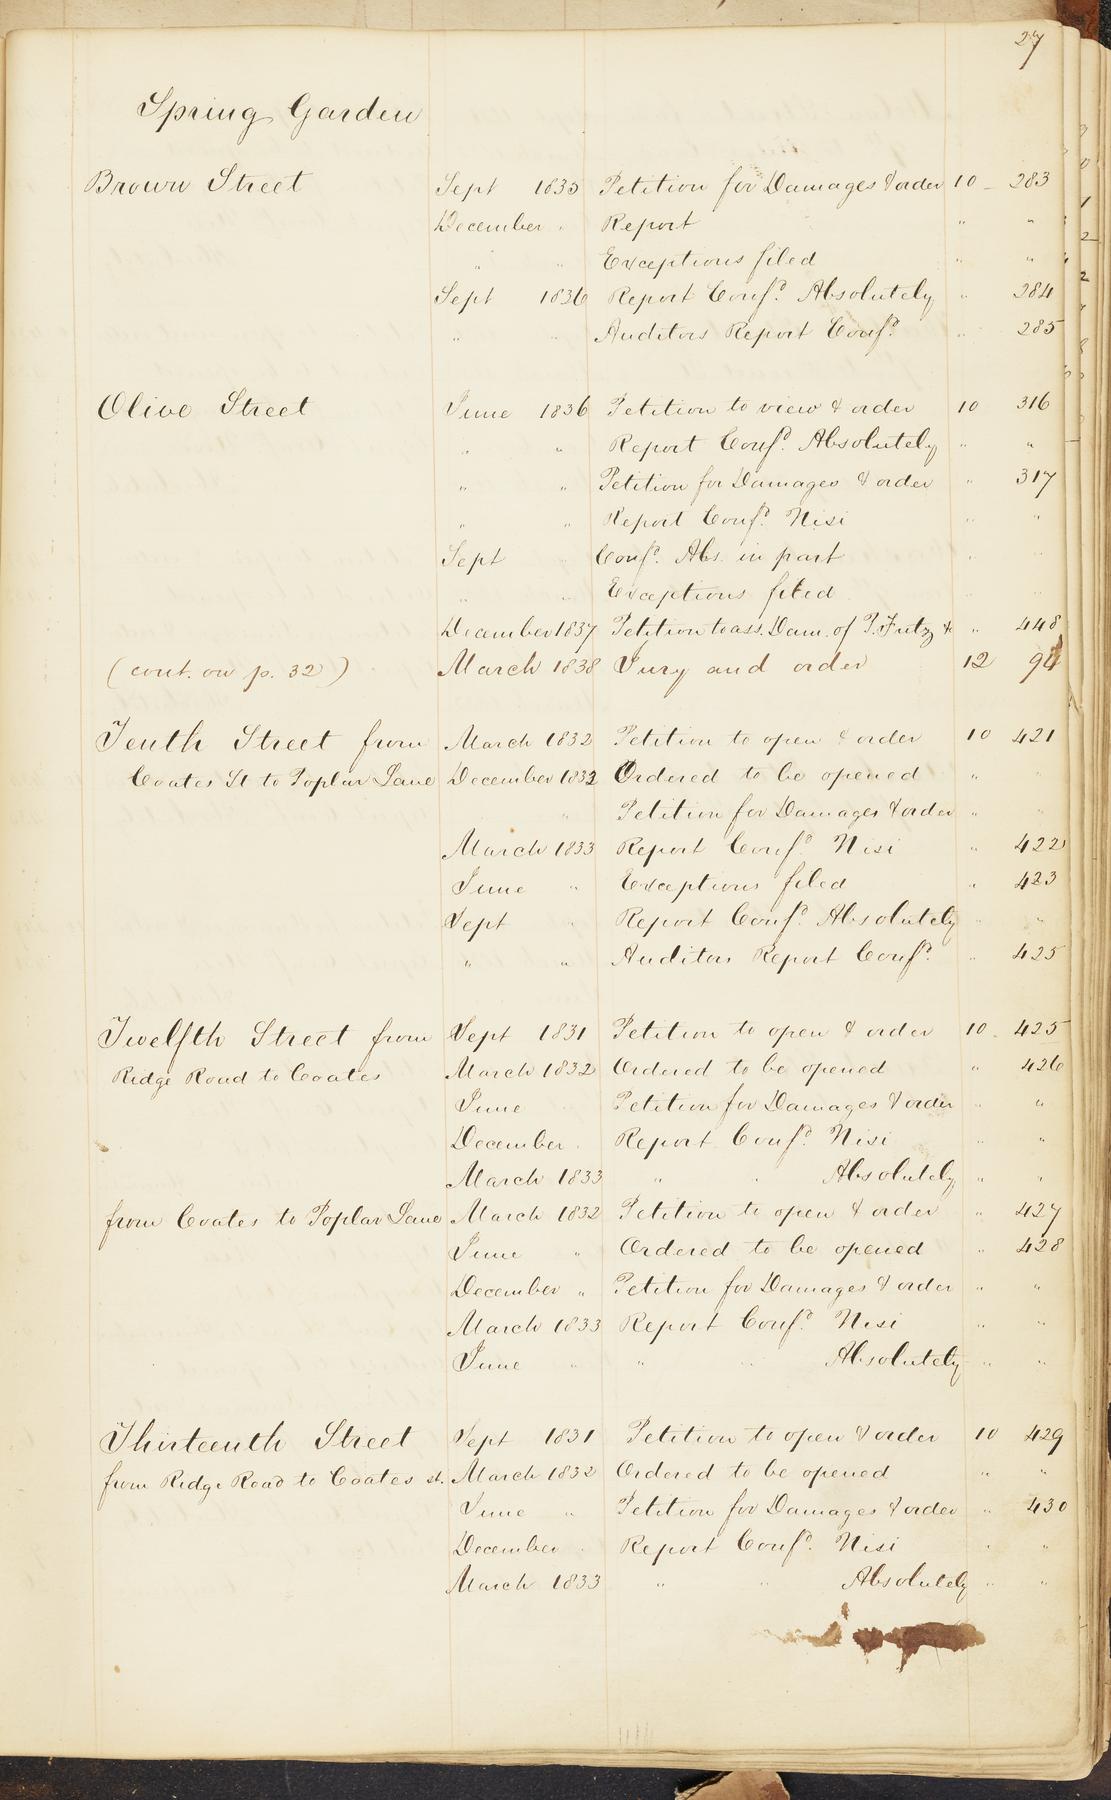 27
Spring Garden
Brown Street Sept 1835 Petition for Damages & order 10 283
December " Report " "
" " Exceptions filed " "
Sept 1836 Report Conf.d Absolutely " 284
" " Auditors Report Conf.d " 285
Olive Street June 1836 Petition to view & order 10 316
" " Report Conf.d Absolutely " "
" " Petition for Damages & order " 317
" " Report Conf.d Nisi " "
Sept " Conf.d Abs. in part " "
" " Exceptions filed " "
December 1837 Petition to ass. Dam. of P. Fritz & " 448
(cont. on p. 32) March 1838 Jury and order 12 94
Tenth Street from March 1832 Petition to open & order 10 421
Coates St to Poplar Lane December 1832 Ordered to be opened " "
" Petition for Damages & order " "
March 1833 Report Conf.d Nisi " 422
June " Exceptions filed " 423
Sept " Report Conf.d Absolutely " "
" " Auditors Report Conf.d " 425
Twelfth Street from Sept 1831 Petition to open & order 10 425
Ridge Road to Coates March 1832 Ordered to be opened " 426
June " Petition for Damages & order " "
December " Report Conf.d Nisi " "
March 1833 " " Absolutely " "
from Coates to Poplar Lane March 1832 Petition to open & order " 427
June " Ordered to be opened " 428
December " Petition for Damages & order " "
March 1833 Report Conf.d Nisi " "
June " " " Absolutely " "
Thirteenth Street Sept 1831 Petition to open & order 10 429
from Ridge Road to Coates st. March 1832 Ordered to be opened " "
June " Petition for Damages & order " 430
December " Report Conf.d Nisi " "
March 1833 " " Absolutely " "